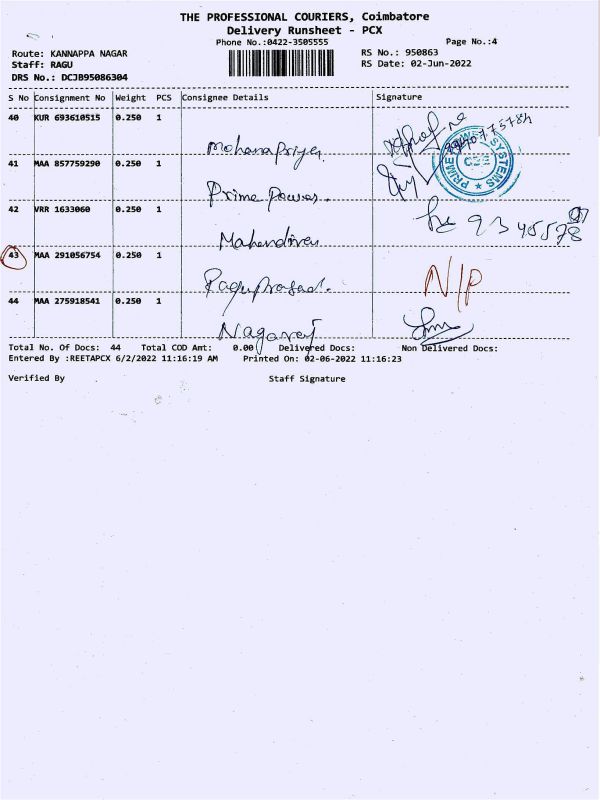 THE PROFESSIONAL COURIERS, Coimbatore
Delivery Runsheet - PCX
Phone No.:0422-3505555 Page No.:4
Route: KANNAPPA NAGAR RS No.: 950863
Staff: RAGU RS Date: 02-Jun-2022
DRS No.: DCJB95086304
S No Consignment No Weight PCS Consignee Details Signature
40 KUR 693610515 0.250 1
Mohanapriya
41 MAA 857759290 0.250 1
Prime Power.
PRIME POWER SYSTEMS
CBE
42 VRR 1633060 0.250 1
Mahendiran
43 MAA 291056754 0.250 1
Raguprasad. N/P
44 MAA 275918541 0.250 1
Nagaraj
Total No. Of Docs: 44 Total COD Amt: 0.00 Delivered Docs: Non Delivered Docs:
Entered By :REETAPCX 6/2/2022 11:16:19 AM Printed On: 02-06-2022 11:16:23
Verified By Staff Signature